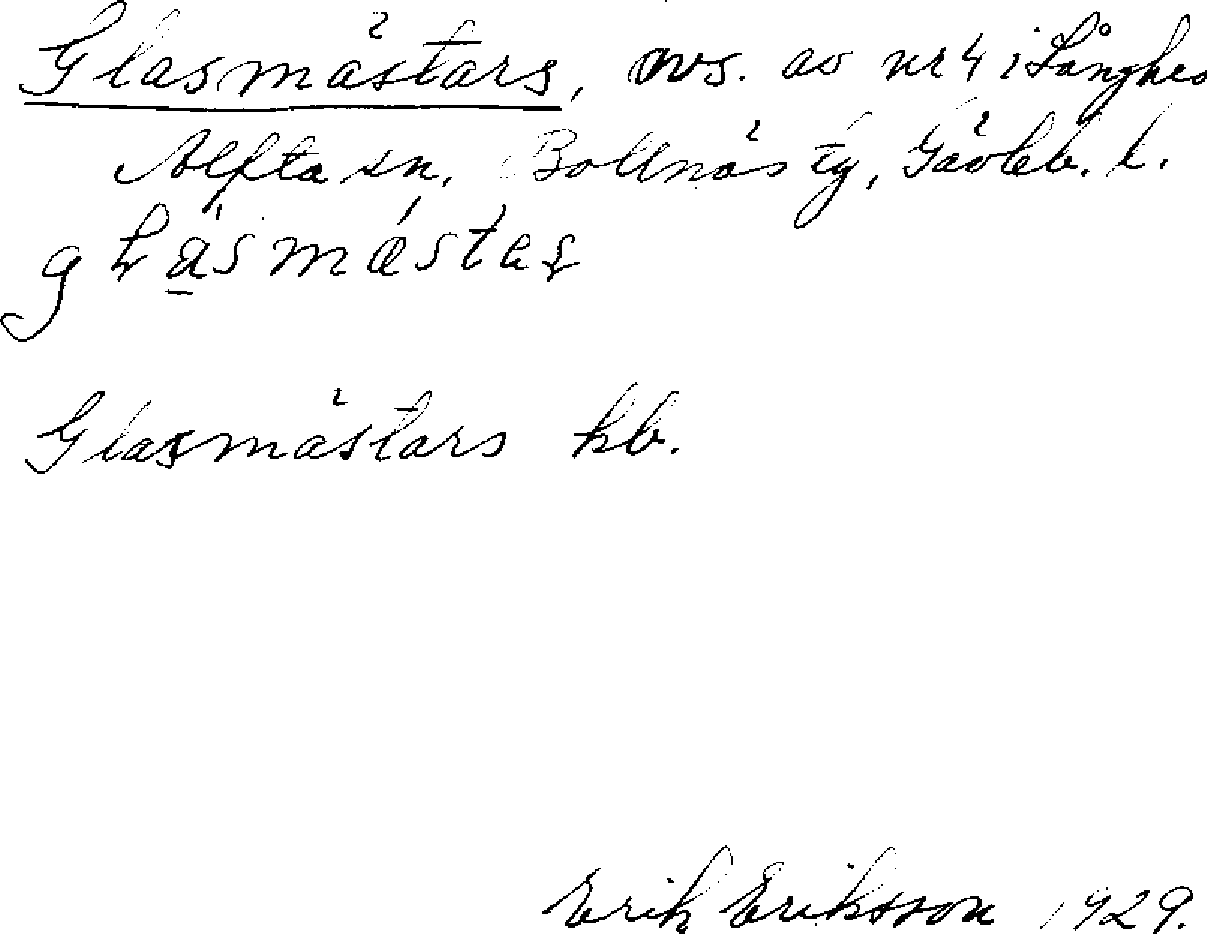 Glasmästars, avs. av nr 4 i Långhed
Alfta sn, Bollnäs tg, Gävleb. l.
Glasmästars kb.
Erik Eriksson 1929.